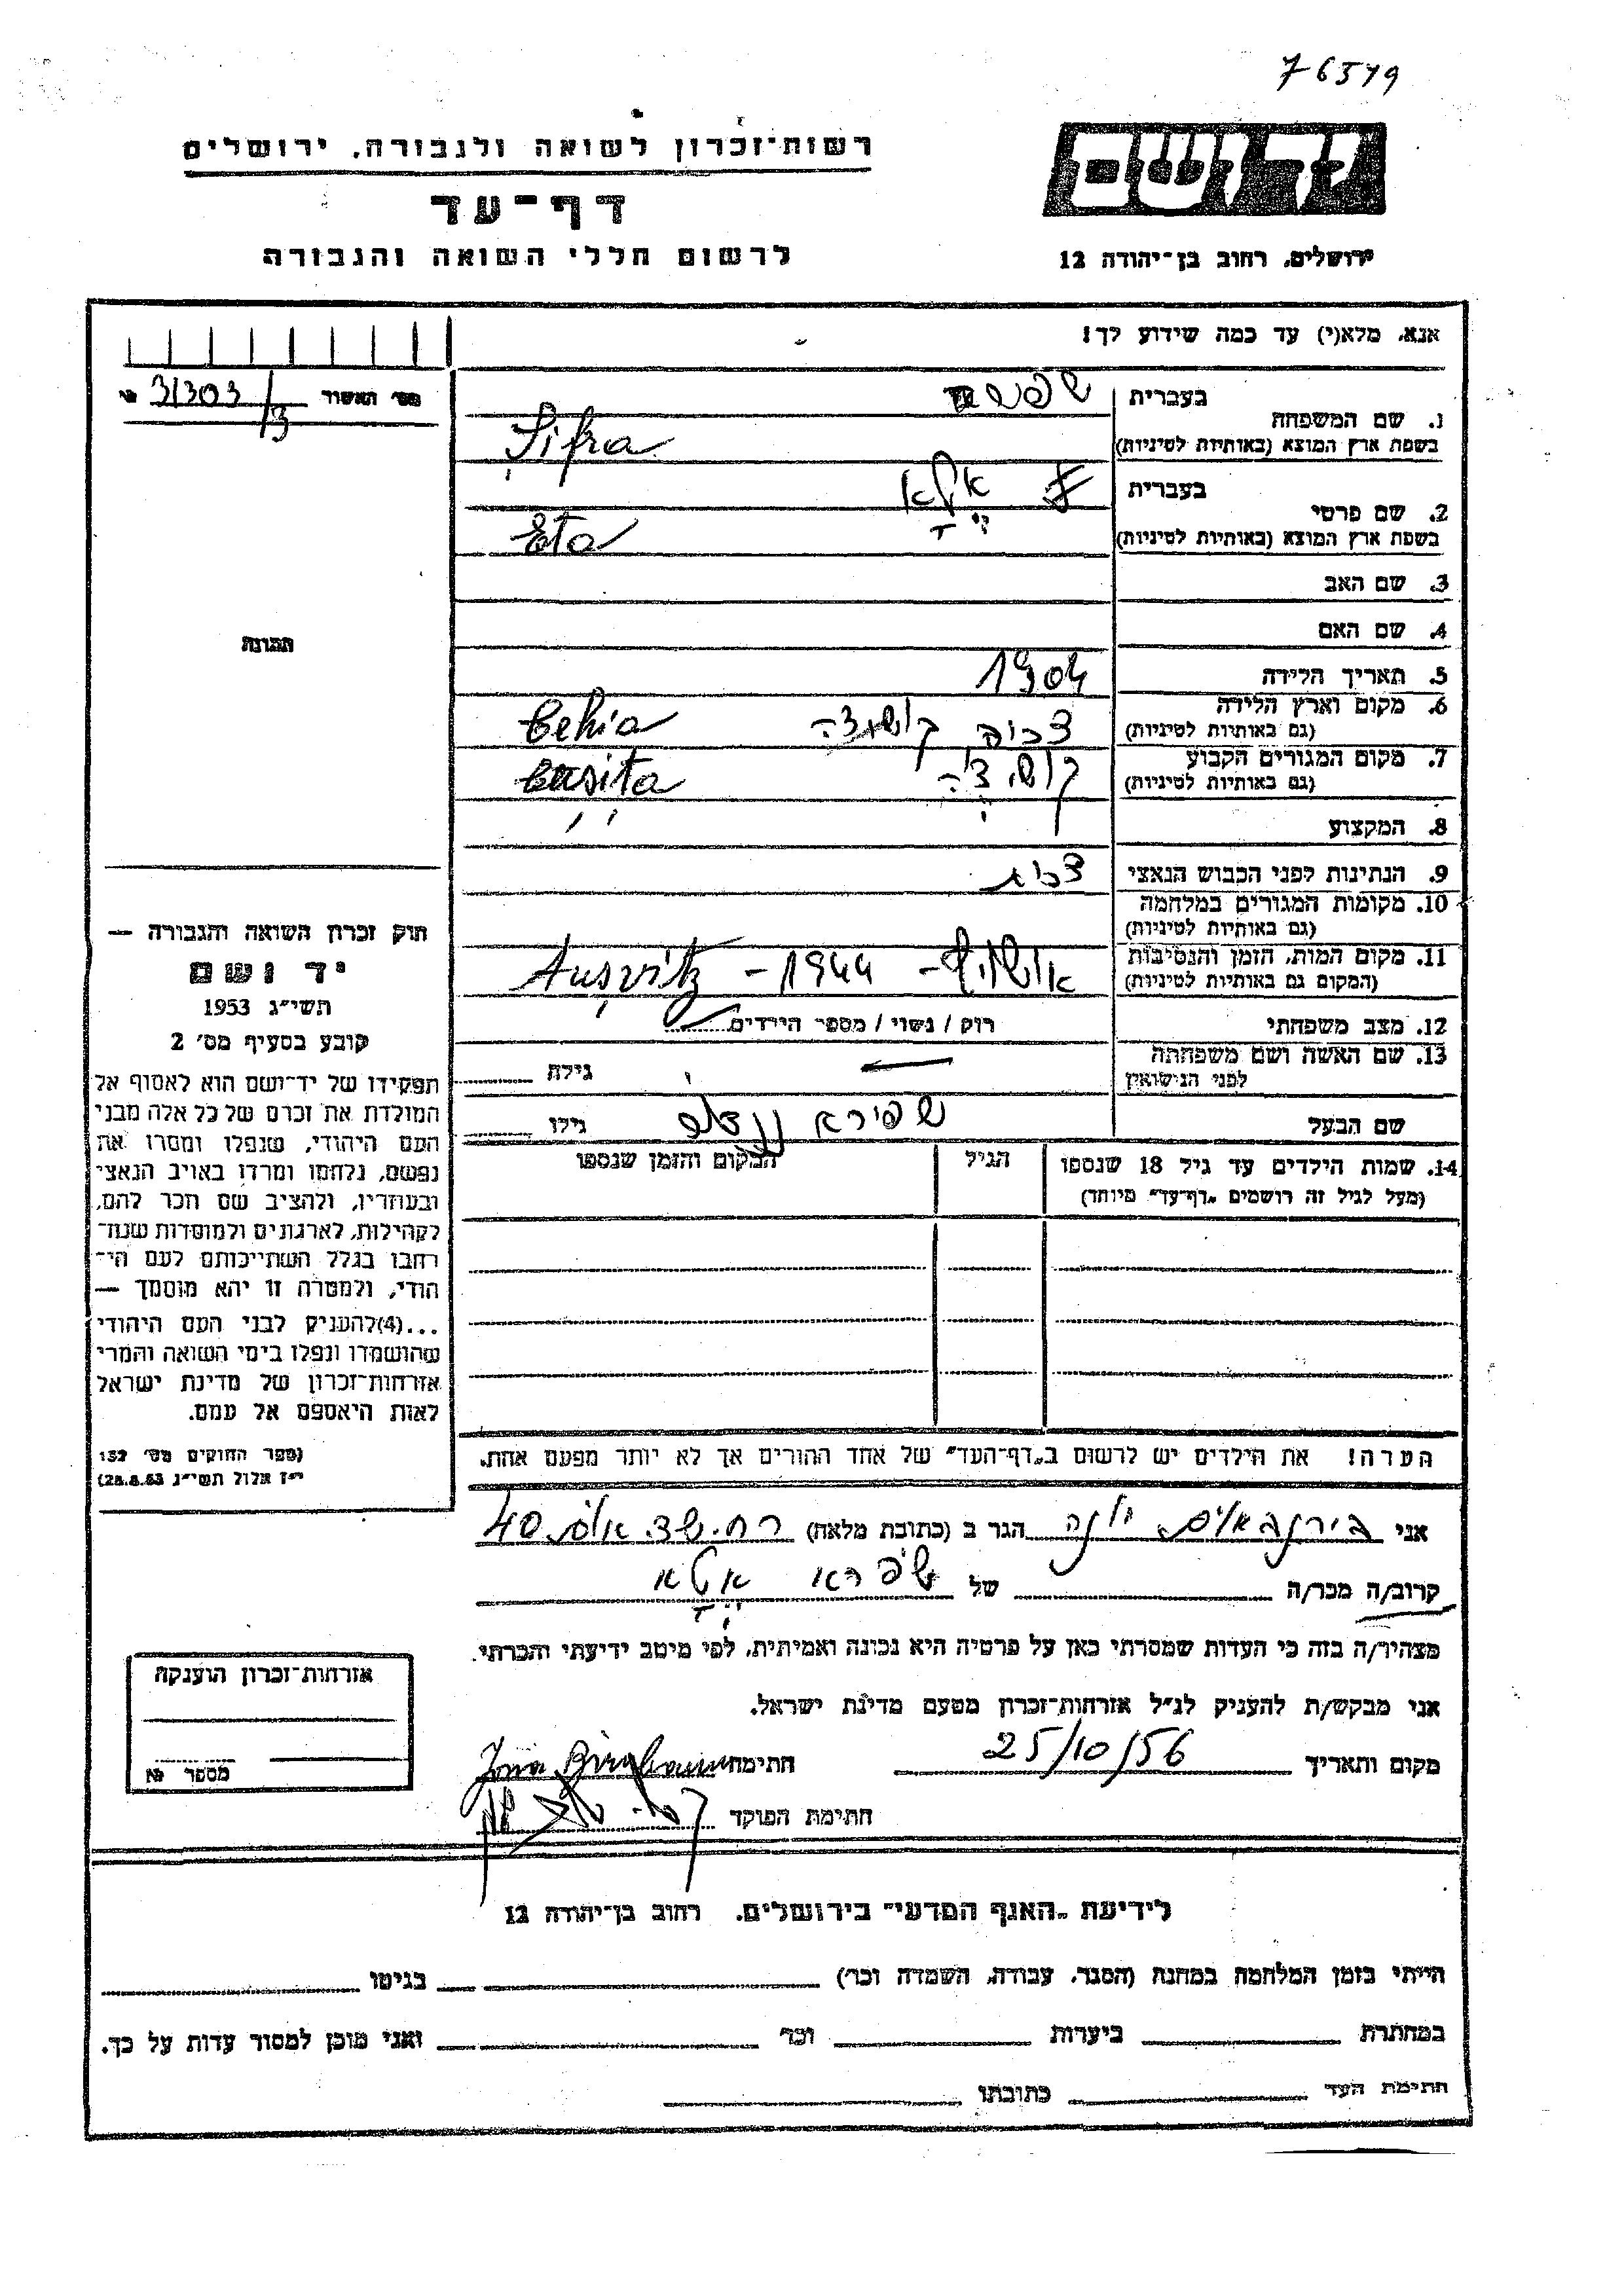 76579
רשות־זכרון לשואה ולגבורה, ירושלים
דף־עד
לרשום חללי השואה והגבורה
ירושלים, רחוב בן־יהודה 12
אנא, מלא(י) עד כמה שידוע לך!
מס׳ האשור 31303/3
1. שם המשפחה
בעברית
בשפת ארץ המוצא (באותיות לטיניות) Şifra
2. שם פרטי
בעברית אטא
בשפת ארץ המוצא (באותיות לטיניות) Eta
3. שם האב
4. שם האם
5. תאריך הלידה 1904
6. מקום וארץ הלידה
(גם באותיות לטיניות) צכיה Cehia
7. מקום המגורים הקבוע
(גם באותיות לטיניות) קושיצה Cuşiţa
8. המקצוע
9. הנתינות לפני הכבוש הנאצי צכית
10. מקומות המגורים במלחמה
(גם באותיות לטיניות)
11. מקום המות, הזמן והנסיבות
(המקום גם באותיות לטיניות) אושויץ - 1944 - Auşvitz
12. מצב משפחתי רוק / נשוי / מספר הילדים
13. שם האשה ושם משפחתה
לפני הנישואין גילה
שם הבעל שפירא גילו
14. שמות הילדים עד גיל 18 שנספו
(מעל לגיל זה רושמים „דף־עד״ מיוחד)
הגיל
המקום והזמן שנספו
תמונה
חוק זכרון השואה והגבורה —
יד ושם
תשי״ג 1953
קובע בסעיף מס׳ 2
תפקידו של יד־ושם הוא לאסוף אל
המולדת את זכרם של כל אלה מבני
העם היהודי, שנפלו ומסרו את
נפשם, נלחמו ומרדו באויב הנאצי
ובעוזריו, ולהציב שם וזכר להם,
לקהילות, לארגונים ולמוסדות שנח־
רחבו בגלל השתייכותם לעם הי־
הודי, ולמטרה זו יהא מוסמך —
...(4)להעניק לבני העם היהודי
שהושמדו ונפלו בימי השואה והמרי
אזרחות־זכרון של מדינת ישראל
לאות היאספם אל עמם.
(ספר החוקים מס׳ 132
י״ז אלול תשי״ג 28.8.53)
הערה! את הילדים יש לרשום ב„דף־העד״ של אחד ההורים אך לא יותר מפעם אחת.
אני בירנבאום יונה הגר ב (כתובת מלאה) 40
קרוב/ה מכר/ה של שפרא אטא
מצהיר/ה בזה כי העדות שמסרתי כאן על פרטיה היא נכונה ואמיתית, לפי מיטב ידיעתי והכרתי.
אני מבקש/ת להעניק לנ״ל אזרחות־זכרון מטעם מדינת ישראל.
מקום ותאריך 25/10/56 חתימה Jona Birnbaum
חתימת הפוקד
אזרחות־זכרון הוענקה
מספר №
לידיעת „האגף המדעי״ בירושלים, רחוב בן־יהודה 12
הייתי בזמן המלחמה במחנה (הסגר, עבודה, השמדה וכר׳) בגיטו
במחתרת ביערות וכר׳ ואני מוכן למסור עדות על כך.
חתימת העד כתובתו